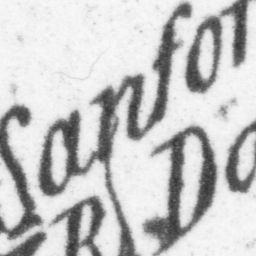 Sanfor
R Do